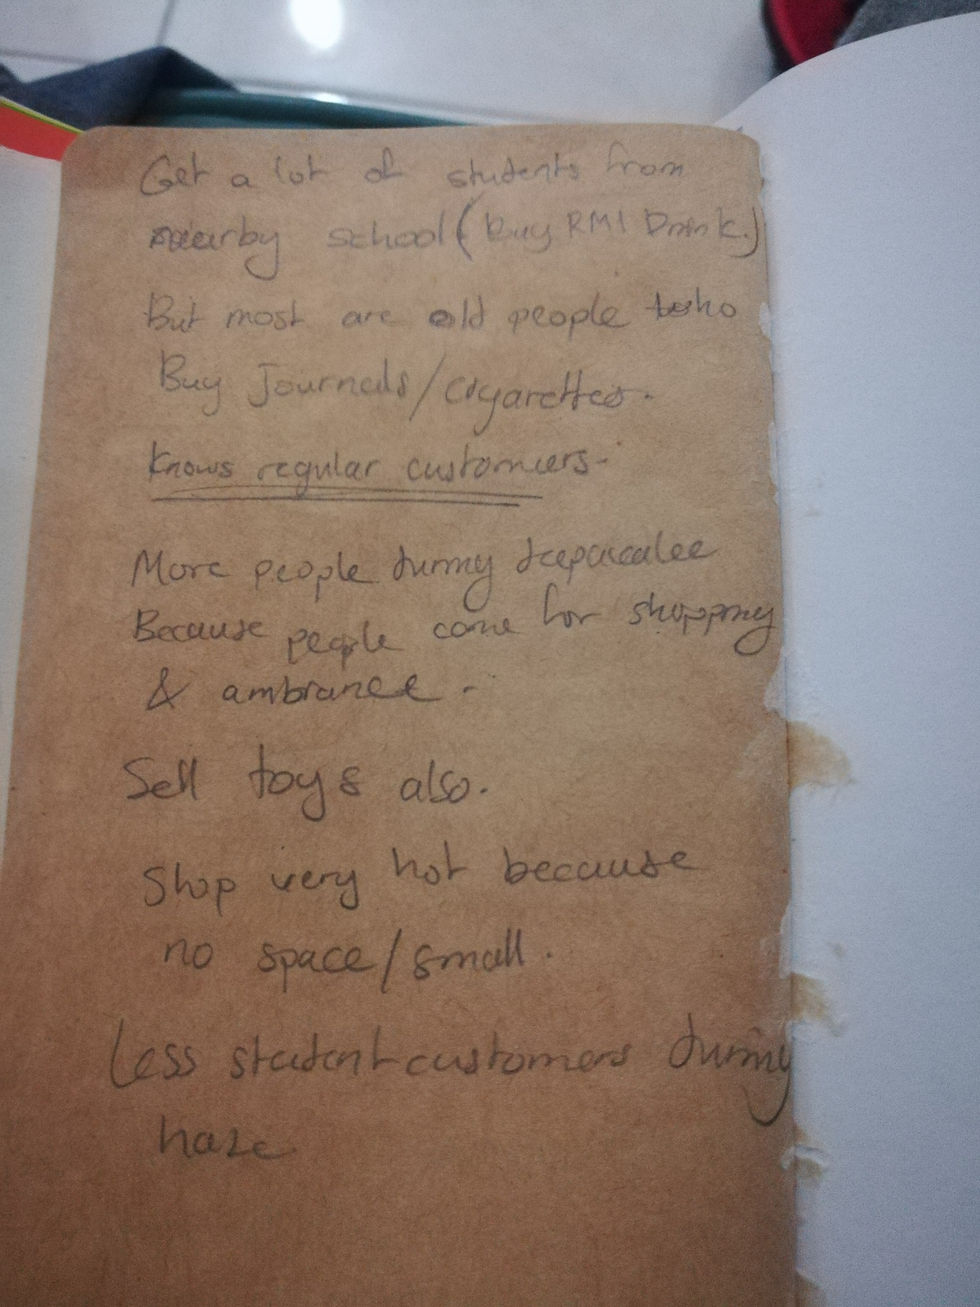 Get a lot of students from
nearby school (Buy RM1 Drink.)
But most are old people who
Buy Journals/cigarettes.
Knows regular customers.
More people during deepavalee
Because people come for shopping
& ambiance.
Sell toys also.
Shop very hot because
no space/small.
Less student customers during
haze